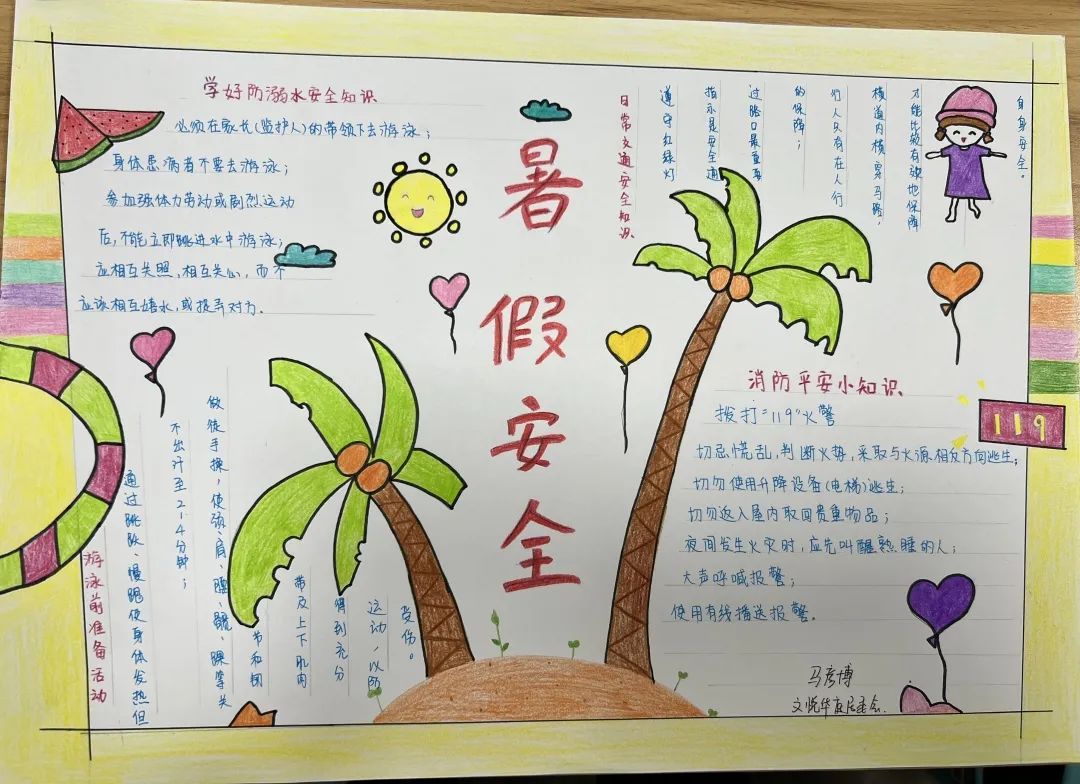 暑假安全
学好防溺水安全知识
必须在家长(监护人)的带领下去游泳；
身体患病者不要去游泳；
参加强体力劳动或剧烈运动
后,不能立即跳进水中游泳；
应相互关照,相互关心,而不
应该相互嬉水,或捉弄对方.
日常交通安全知识
遵守红绿灯
指示是安全通
过路口最重要
的保障；
行人只有在人行
横道内横穿马路,
才能比较有效地保障
自身安全。
游泳前准备活动
通过跳跃、慢跑使身体发热但
不出汗至2-4分钟；
做徒手操,使颈、肩、腰、髋、踝等关
节和韧
带及上下肌肉
得到充分
运动,以防
受伤。
消防平安小知识
拨打"119"火警
切忌慌乱,判断火势,采取与火源相反方向逃生；
切勿使用升降设备(电梯)逃生；
切勿返入屋内取回贵重物品；
夜间发生火灾时,应先叫醒熟睡的人；
大声呼喊报警；
使用有线播送报警。
119
马彦博
文悦华庭居委会.